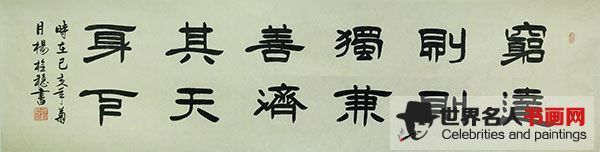 窮則獨善其身
達則兼濟天下
時在己亥年菊
月楊書
世界名人书画网
Celebrities and paintings